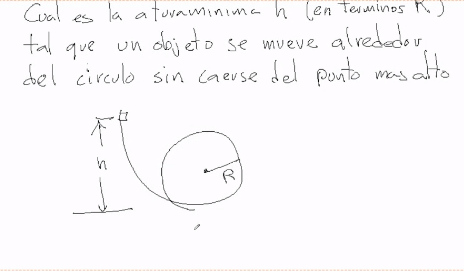 Cual es la aturaminima h (en terminos R)
tal que un objeto se mueve alrededor
del circulo sin caerse del punto mas alto
h
R